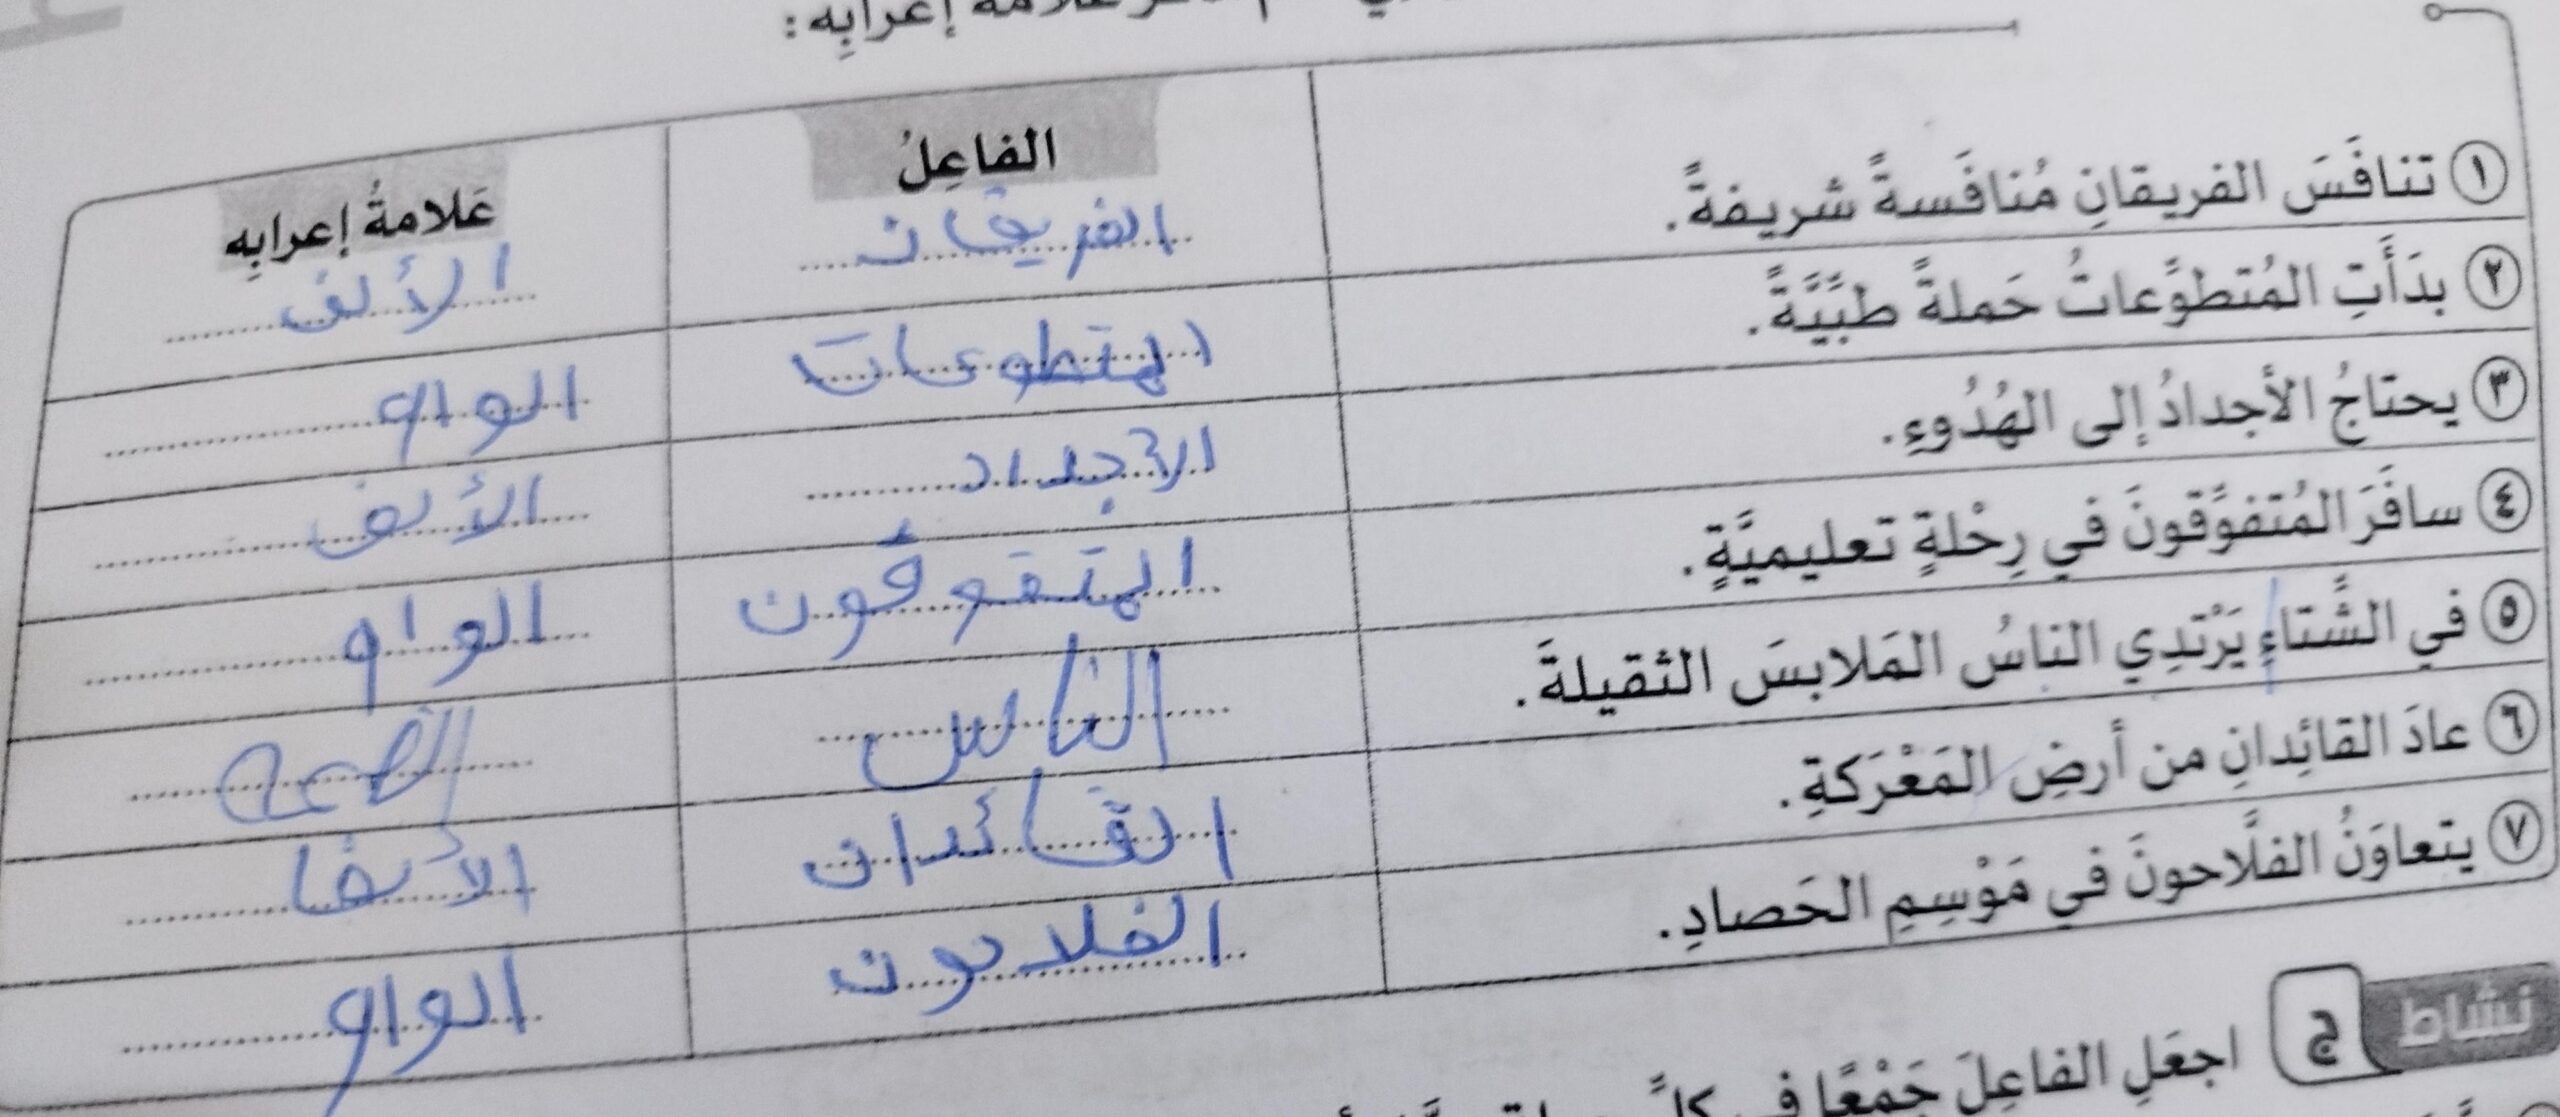 علامة إعرابِه :
الفاعِلُ
عَلامةُ إعرابِه
١ تنافَسَ الفريقانِ مُنافَسةً شريفةً.
الفريقان
الألف
٢ بدَأَتِ المُتطوِّعاتُ حَملةً طبِّيَّةً.
المتطوعات
الواو
٣ يحتاجُ الأجدادُ إلى الهُدُوءِ.
الأجداد
الألف
٤ سافَرَ المُتفوِّقونَ في رِحْلةٍ تعليميَّةٍ.
المتفوقون
الواو
٥ في الشِّتاءِ يَرْتدِي الناسُ المَلابسَ الثقيلةَ.
الناس
الضمة
٦ عادَ القائِدانِ من أرضِ المَعْرَكةِ.
القائدان
الألف
٧ يتعاوَنُ الفلَّاحونَ في مَوْسِمِ الحَصادِ.
الفلاحون
الواو
نشاط ج اجعَلِ الفاعِلَ جَمْعًا في كلِّ